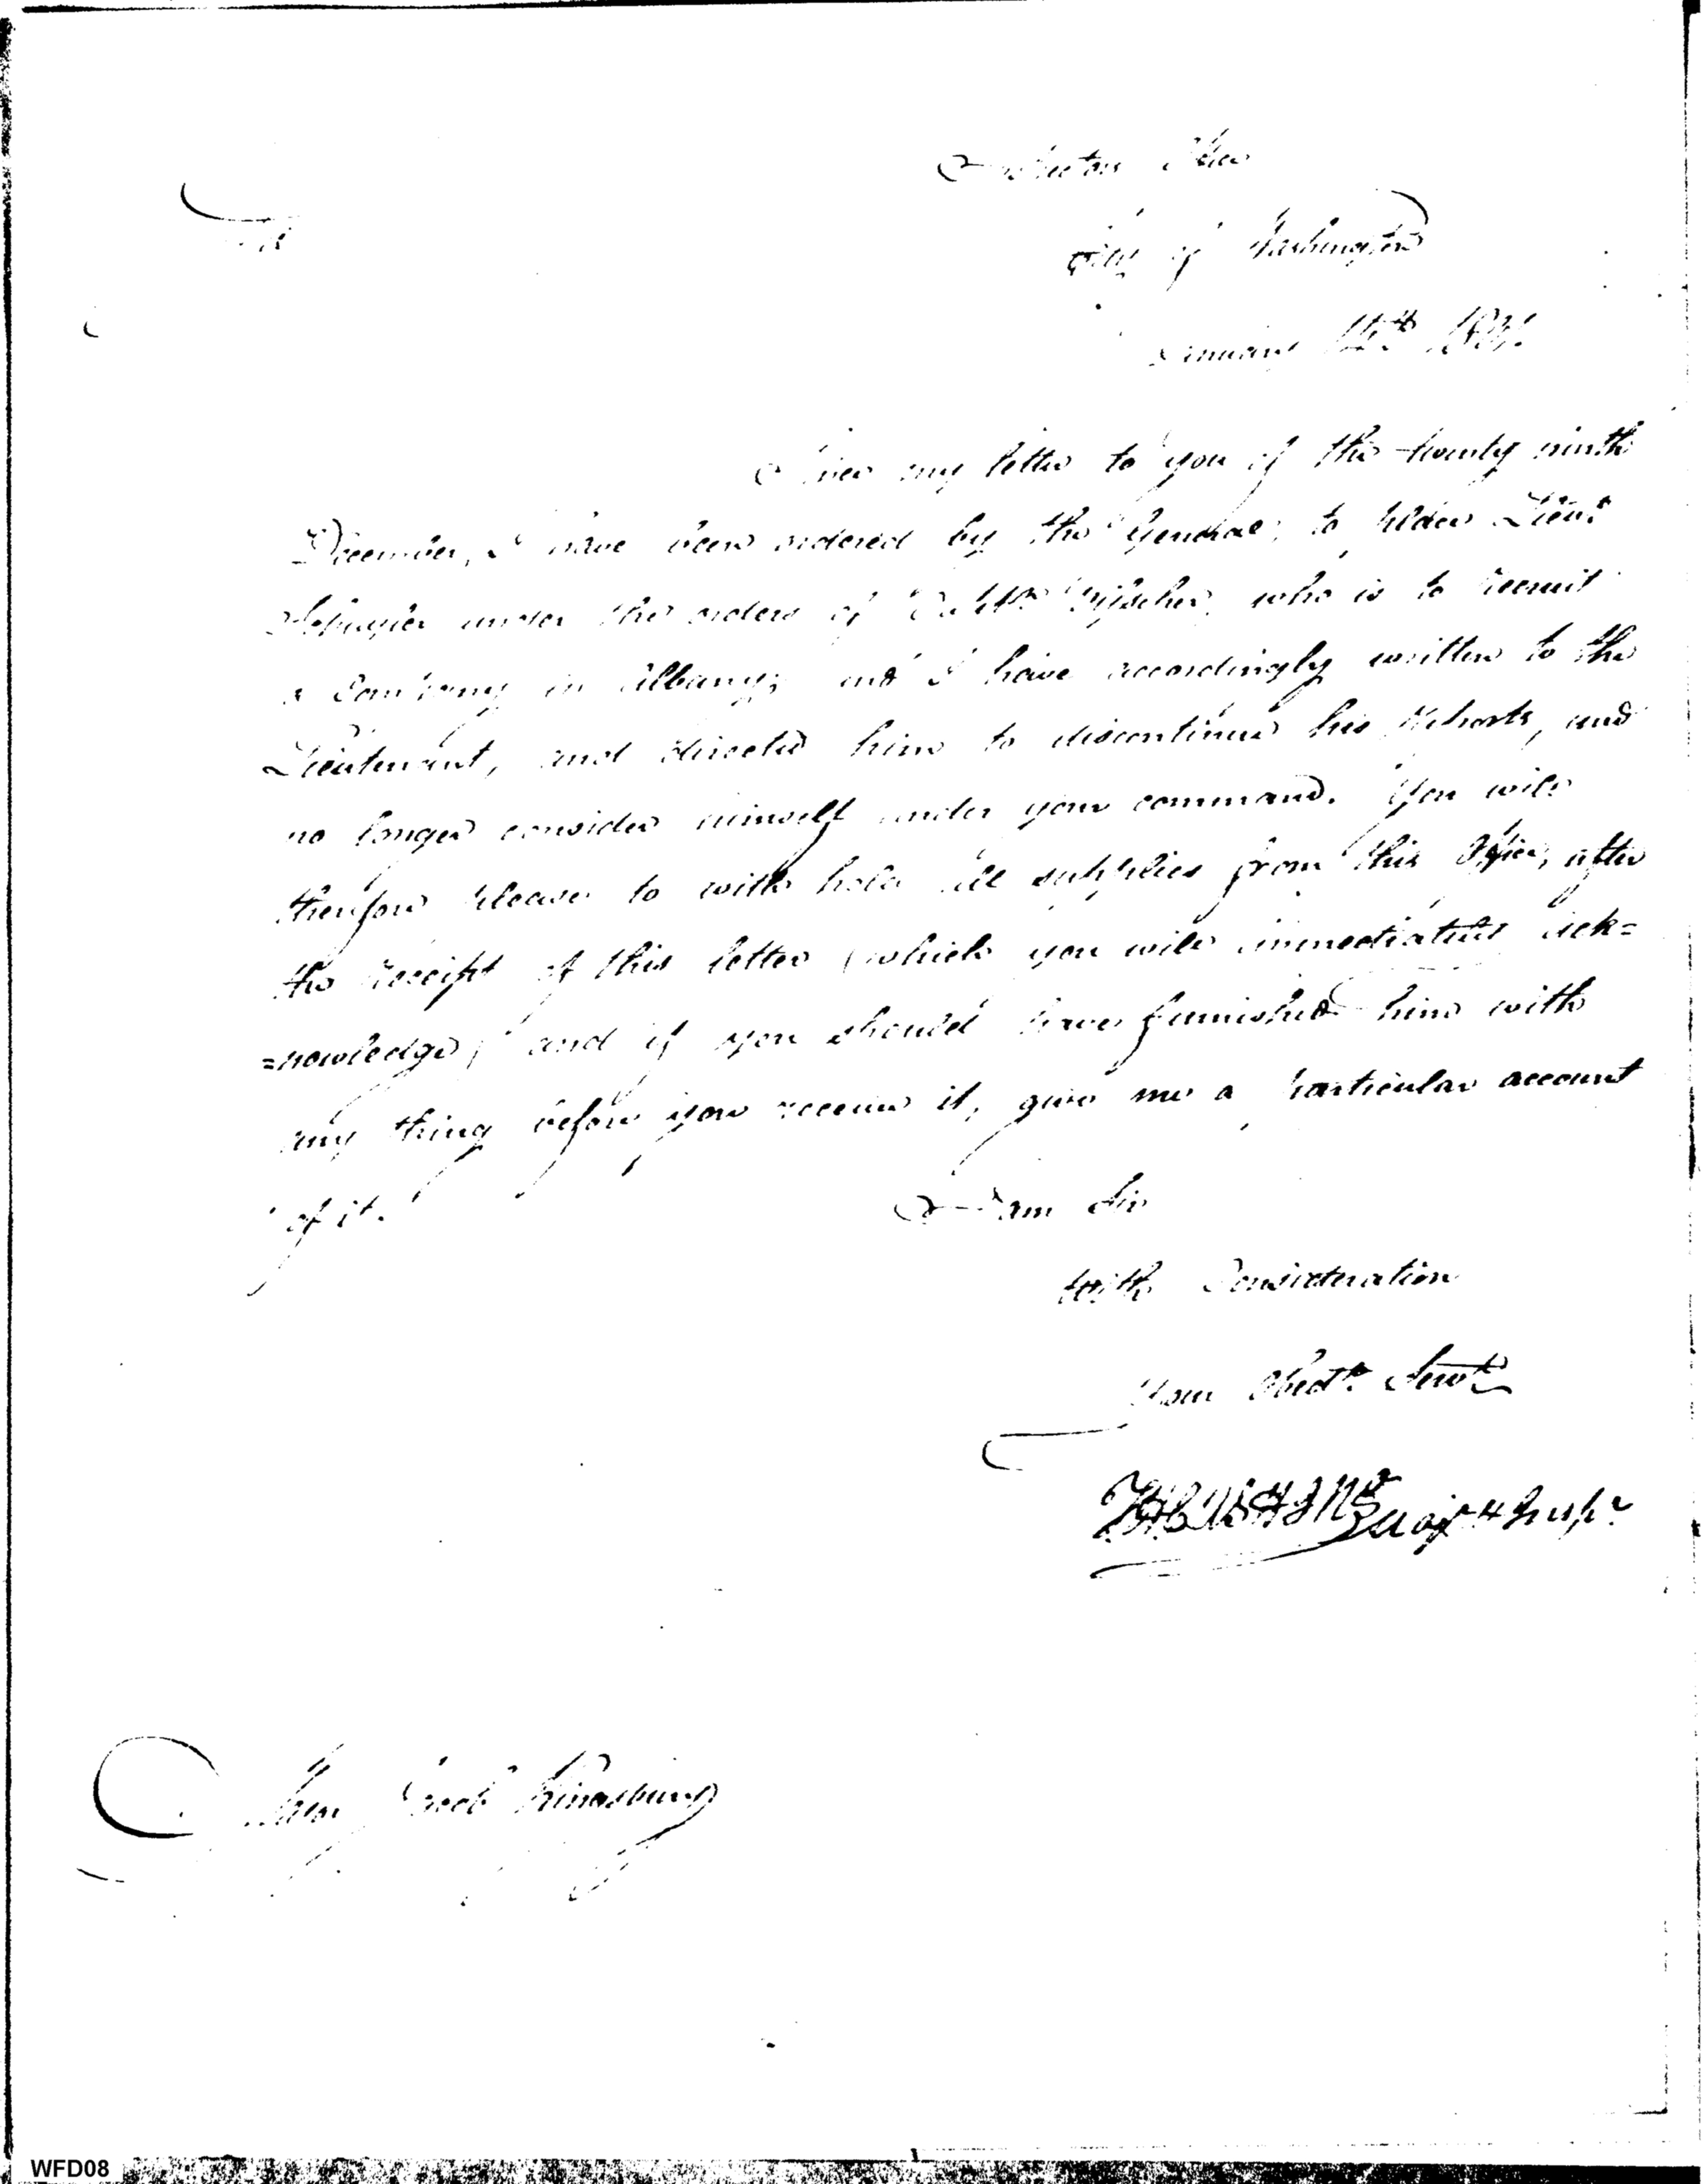 Inspectors Office
Sir
City of Washington
January 14th
Since my letter to you of the twenty ninth
December, I have been ordered by the General, to place Lieut
under the orders of Capt. who is to recruit
a Company in Albany; and I have accordingly written to the
Lieutenant, and directed him to discontinue his Reports, and
no longer consider himself under your command. You will
therefore please to with hold all supplies from this Officer, after
the receipt of this letter (which you will immediately ack=
=nowledge) and if you should have furnished him with
any thing before you receive it, give me a particular account
of it.
I am Sir
With Consideration
Your Obedt. Servt.
THCUSHING Majr & Inspr
Major Jacob Kingsbury
WFD08